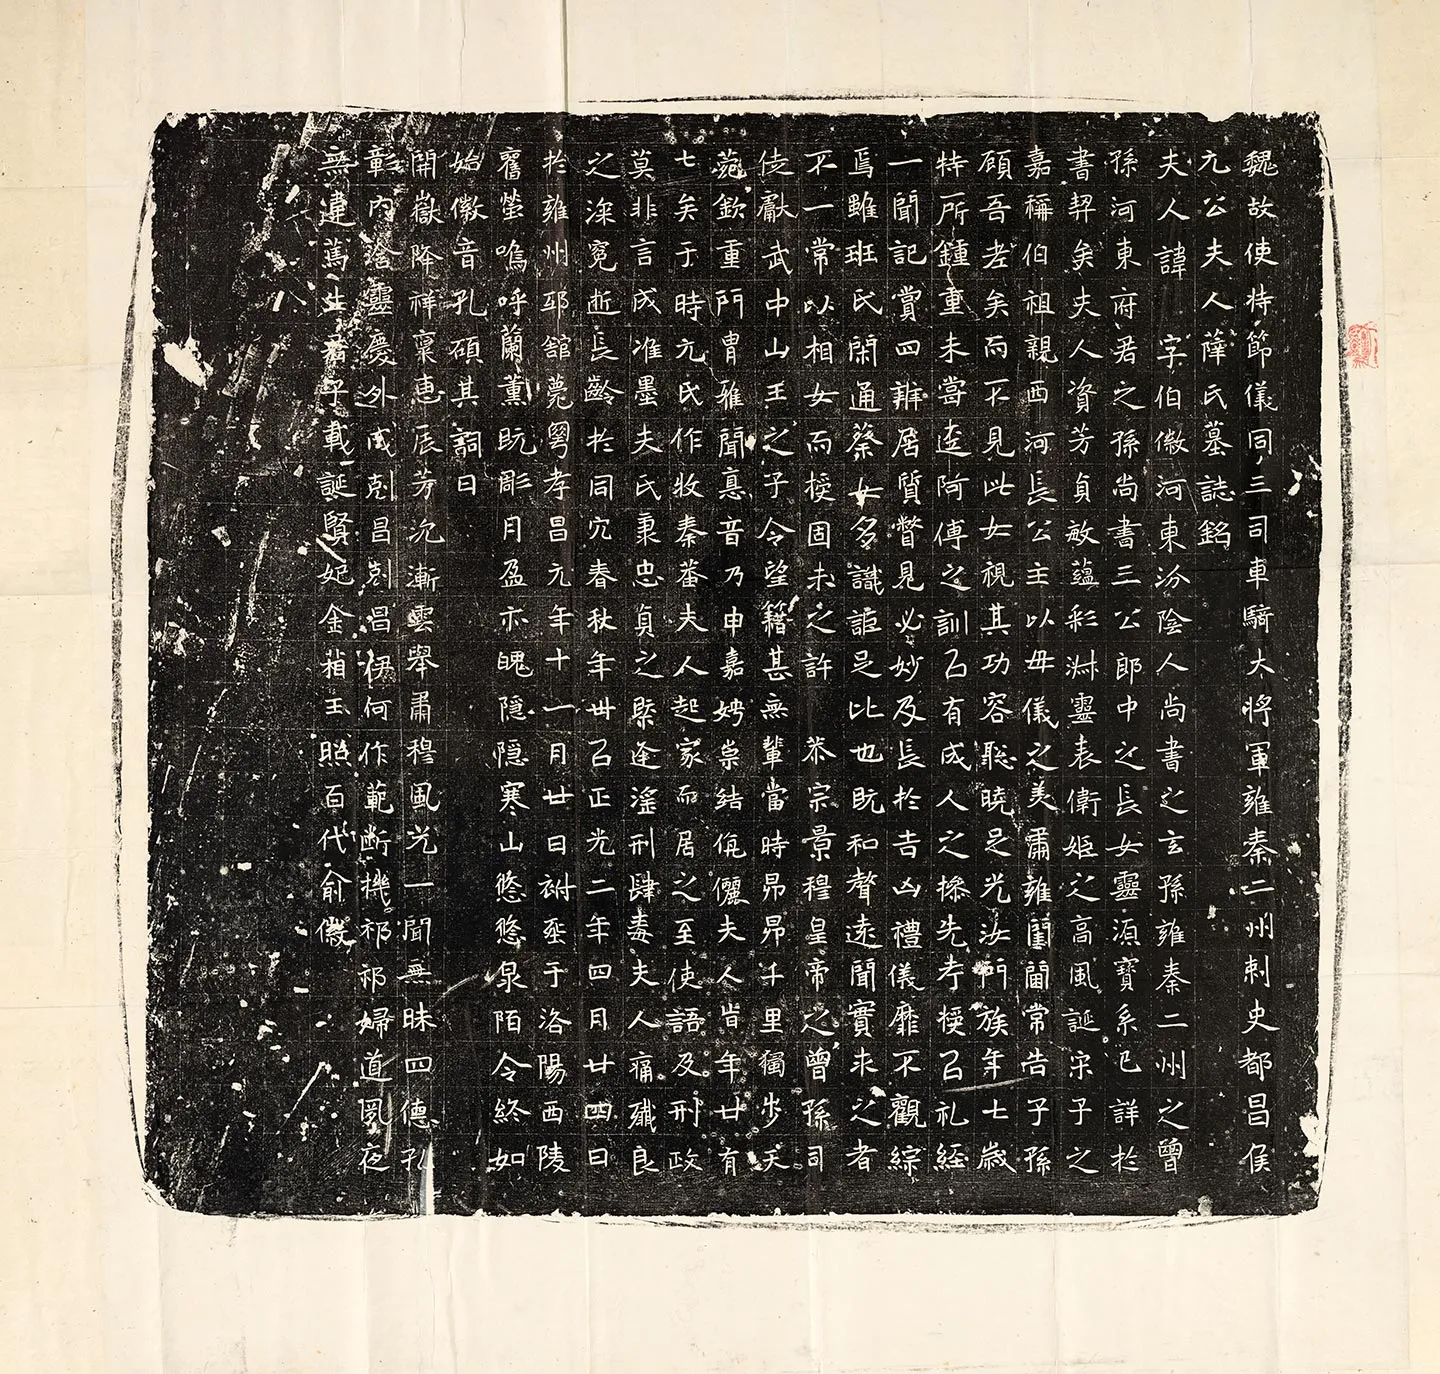 魏故使持節儀同三司車騎大將軍雍秦二州刺史都昌侯
元公夫人薛氏墓誌銘
夫人諱 字伯徽河東汾陰人尚書之玄孫雍秦二州之曾
孫河東府君之孫尚書三公郎中之長女靈源寶系已詳於
書契矣夫人資芳貞敏蘊彩淋靈表衛姬之高風誕宋子之
嘉稱伯祖親西河長公主以母儀之美肅雍閨閫常告子孫
顧吾老矣而不見此女視其功容聡曉足光汝門族年七歲
特所鍾重未嘗逺阿傅之訓已有成人之操先考授以礼經
一聞記賞四辯居質瞥見必妙及長於吉凶禮儀靡不觀綜
焉雖班氏閑通蔡女多識詎足比也既和聲遠聞實求之者
不一常以相女而授固未之許 恭宗景穆皇帝之曾孫司
徒獻武中山王之子令望籍甚無輩當時昴昴千里獨步天
苑欽重門胄雅聞惪音乃申嘉娉崇結伉儷夫人時年廿有
七矣于時元氏作牧秦蕃夫人起家而居之至使語及刑政
莫非言成准墨夫氏秉忠貞之槩逢滛刑肆毒夫人痛殲良
之深冤逝長齡於同穴春秋年卅以正光二年四月廿四日
於雍州邸舘薨粵孝昌元年十一月廿日祔塟于洛陽西陵
舊塋嗚呼蘭薰既彫月盈亦魄隠隠寒山悠悠泉陌令終如
始徽音孔碩其詞曰
開嶽降祥稟惠辰芳沉漸雲舉肅穆風光一聞無昧四德孔
彰內含靈慶外戚剋昌剋昌伊何作範断機祁祁婦道夙夜
無違蔫生君子載誕賢妃金箱玉照百代俞徽